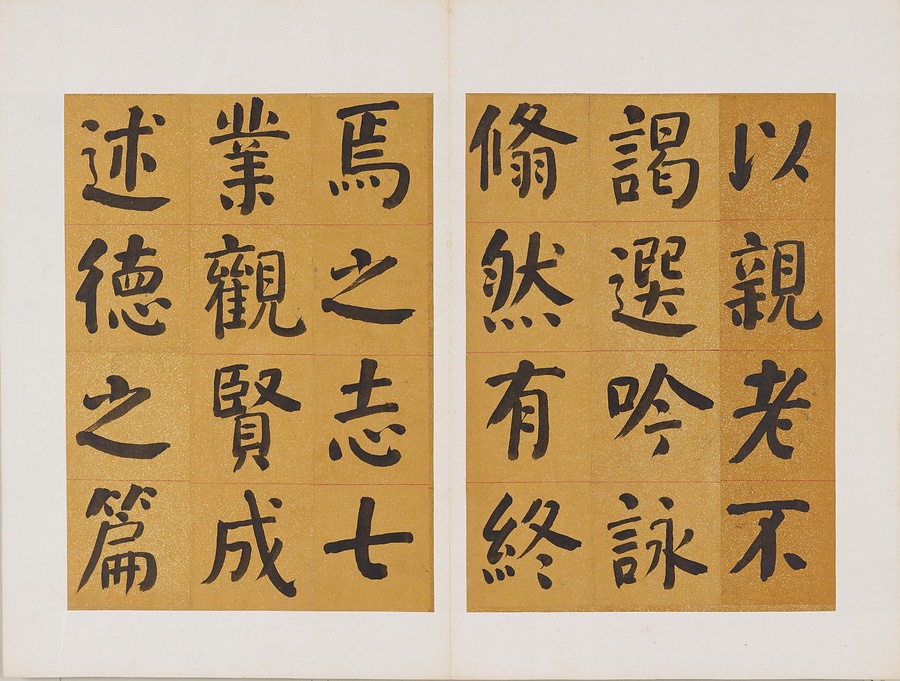 以親老不
謁選吟詠
翛然有終
焉之志七
業觀賢成
述德之篇